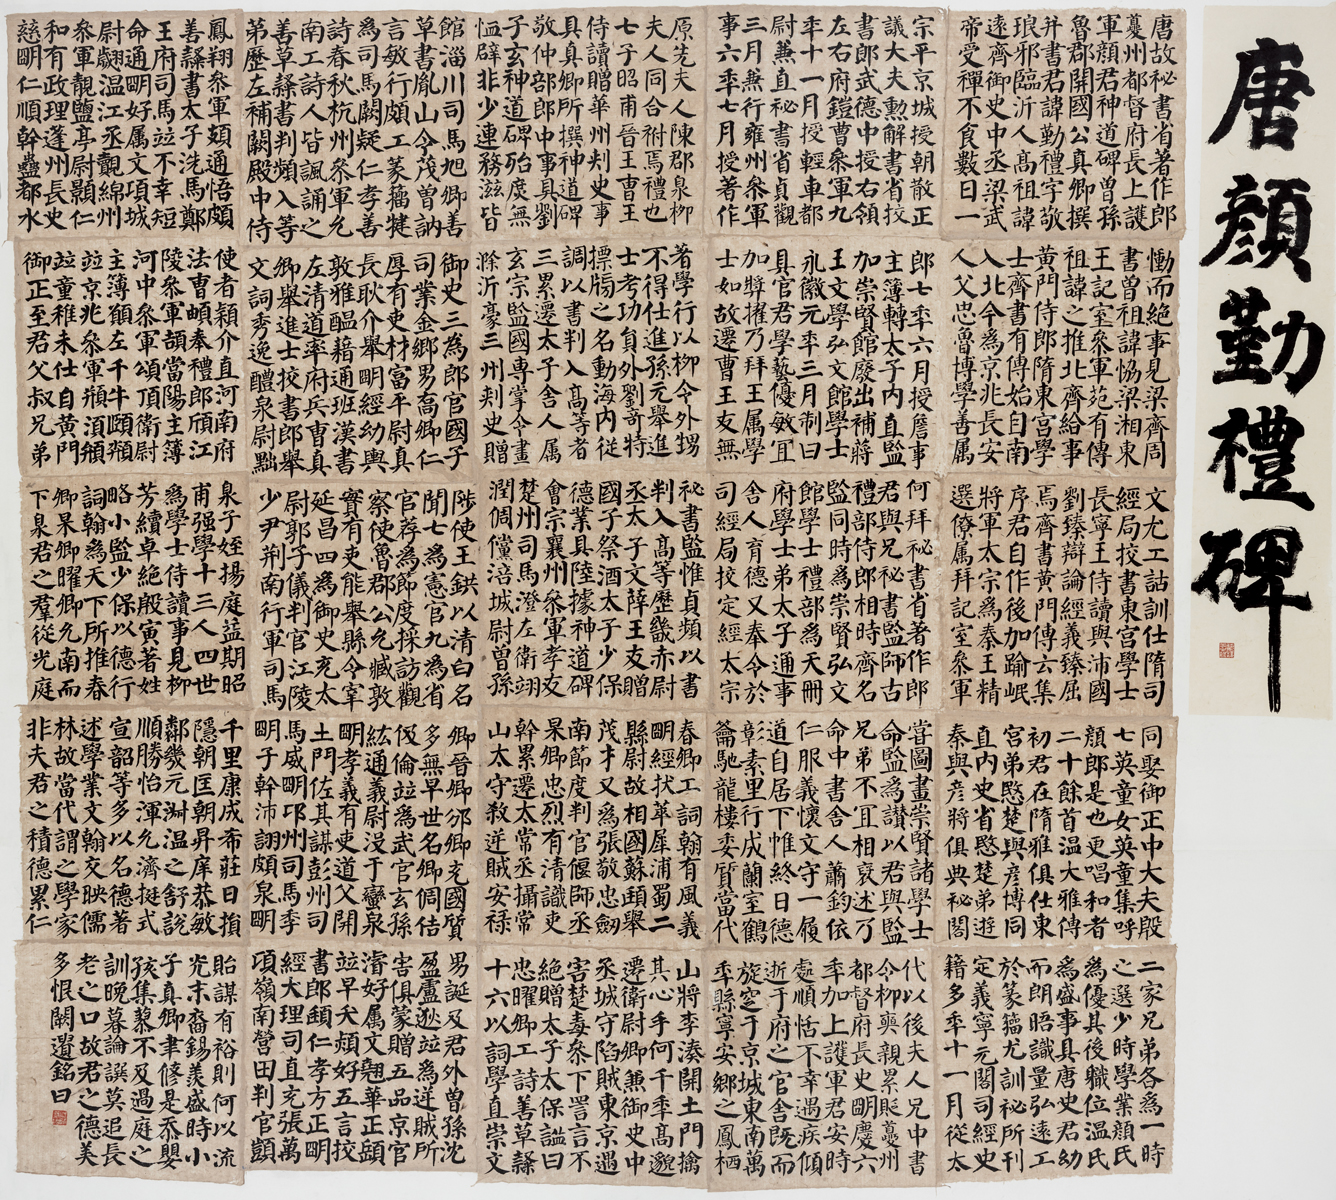 唐顏勤禮碑
唐故秘書省著作郎
夔州都督府長上護
軍顏君神道碑曾孫
魯郡開國公真卿撰
并書君諱勤禮字敬
琅邪臨沂人高祖諱
遠齊御史中丞梁武
帝受禪不食數日一
慟而絕事見梁齊周
書曾祖諱恊梁湘東
王記室叅軍苑有傳
祖諱之推北齊給事
黃門侍郎隋東宮學
士齊書有傳始自南
入北今為京兆長安
人父忠魯博學善属
文尤工詁訓仕隋司
經局挍書東宮學士
長寧王侍讀與沛國
劉臻辯論經義臻屈
焉齊書黃門傳云集
序君自作後加踰岷
將軍太宗為秦王精
選僚属拜記室叅軍
同娶御正中大夫殷
七英童女英童集呼
顏郎是也更唱和者
二十餘首溫大雅傳
初君在隋雅俱仕東
宮弟愍楚與彥博同
直內史省愍楚弟遊
秦與彥將俱典祕閣
二家兄弟各為一時
之選少時學業顏氏
為優其後職位溫氏
為盛事具唐史君幼
而朗晤識量弘遠工
於篆籀尤訓祕所刊
定義寧元閣司經史
籍多年十一月從太
宗平京城授朝散正
議大夫勲解書省挍
書郎武德中授右領
左右府鎧曹叅軍九
年十一月授輕車都
尉兼直秘書省貞觀
三月兼行雍州叅軍
事六年七月授著作
郎七年六月授詹事
主簿轉太子內直監
加崇賢館廢出補蔣
王文學弘文館學士
永徽元年三月制曰
具官君學藝優敏宜
加獎擢乃拜王属學
士如故遷曹王友無
何拜祕書省著作郎
君與兄秘書監師古
禮部侍郎相時齊名
監同時為崇賢弘文
館學士禮部為天冊
府學士弟太子通事
舍人育德又奉令於
司經局挍定經太宗
甞圖畫崇賢諸學士
命監為讃以君與監
兄弟不宜相裒述乃
命中書舍人蕭鈞依
仁服義懷文守一履
道自居下帷終日德
彰素里行成蘭室鶴
籥馳龍樓委質當代
代以後夫人兄中書
令柳奭親累貶夔州
都督府長史明慶六
年加上護軍君安時
處順恬不幸遇疾傾
逝于府之官舍既而
旋窆于京城東南萬
年縣寧安鄉之鳳栖
原先夫人陳郡泉柳
夫人同合祔焉禮也
七子昭甫晉王曹王
侍讀贈華州刾史事
具真卿所撰神道碑
敬仲部郎中事具劉
子玄神道碑殆庶無
恤辟非少連務滋皆
著學行以柳令外甥
不得仕進孫元舉進
士考功貟外劉奇特
摽牓之名動海內從
調以書判入高等者
三累遷太子舍人属
玄宗監國專掌令畫
滁沂濠三州刾史贈
祕書監惟貞頻以書
判入高等歷畿赤尉
丞太子文薛王友贈
國子祭酒太子少保
德業具陸據神道碑
會宗襄州叅軍孝友
楚州司馬澄左衛翊
潤倜儻涪城尉曽孫
春卿工詞翰有風義
明經扶苹犀浦蜀二
縣尉故相國蘇頲舉
茂才又為張敬忠劔
南節度判官偃師丞
杲卿忠烈有清識吏
幹累遷太常丞攝常
山太守殺逆賊安禄
山將李湊開土門擒
其心手何千年高邈
遷衛尉卿兼御史中
丞城守陷賊東京遇
害楚毒叅下詈言不
絕贈太子太保謚曰
忠曜卿工詩善草隸
十六以詞學直崇文
館淄川司馬旭卿善
草書胤山令茂曽訥
言敏行頗工篆籀犍
為司馬闕疑仁孝善
詩春秋杭州叅軍允
南工詩人皆諷誦之
善草隸書判頻入等
第歷左補闕殿中侍
御史三為郎官國子
司業金鄉男喬卿仁
厚有吏材富平尉真
長耿介舉明經幼輿
敦雅醞藉通班漢書
左清道率府兵曹真
卿舉進士挍書郎舉
文詞秀逸醴泉尉黜
陟使王鉷以清白名
聞七為憲官九為省
官荐為節度採訪觀
察使魯郡公允臧敦
實有吏能舉縣令宰
延昌四為御史充太
尉郭子儀判官江陵
少尹荊南行軍司馬
卿晉卿邠卿充國質
多無早世名卿倜佶
伋倫竝為武官玄孫
紘通義尉沒于蠻泉
明孝義有吏道父開
土門佐其謀彭州司
馬威明邛州司馬季
明子幹沛詡頗泉明
男誕及君外曽孫沈
盈盧逖竝為逆賊所
害俱蒙贈五品京官
濬好属文翹華正頤
竝早夭頰好五言挍
書郎頲仁孝方正明
經大理司直充張萬
項嶺南營田判官顗
鳳翔叅軍頍通悟頗
善隸書太子洗馬鄭
王府司馬竝不幸短
命通明好属文項城
尉翽溫江丞覿綿州
叅軍靚鹽亭尉顥仁
和有政理蓬州長史
慈明仁順幹蠱都水
使者穎介直河南府
法曹頔奉禮郎頎江
陵叅軍頡當陽主簿
河中叅軍頌頂衛尉
主簿額左千牛頤頖
竝京兆叅軍頖湏頟
竝童稚未仕自黃門
御正至君父叔兄弟
泉子姪揚庭益期昭
甫强學十三人四世
為學士侍讀事見柳
芳續卓絕殷寅著姓
略小監少保以德行
詞翰為天下所推春
卿杲卿曜卿允南而
下泉君之羣從光庭
千里康成希莊日損
隱朝匡朝昇庠恭敏
鄰幾元淑溫之舒說
順勝怡渾允濟挺式
宣韶等多以名德著
述學業文翰交映儒
林故當代謂之學家
非夫君之積德累仁
貽謀有裕則何以流
光末裔錫羨盛時小
子真卿聿修是忝嬰
孩集慕不及過庭之
訓晚暮論譔莫追長
老之口故君之德美
多恨闕遺銘曰